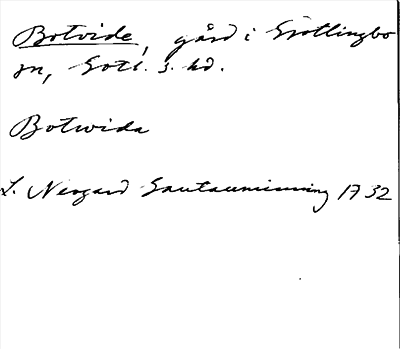 Botvide, gård i Grötlingbo
sn, Gotl. s. hd.
Botwida
L. Nergard Gautauminning 1732